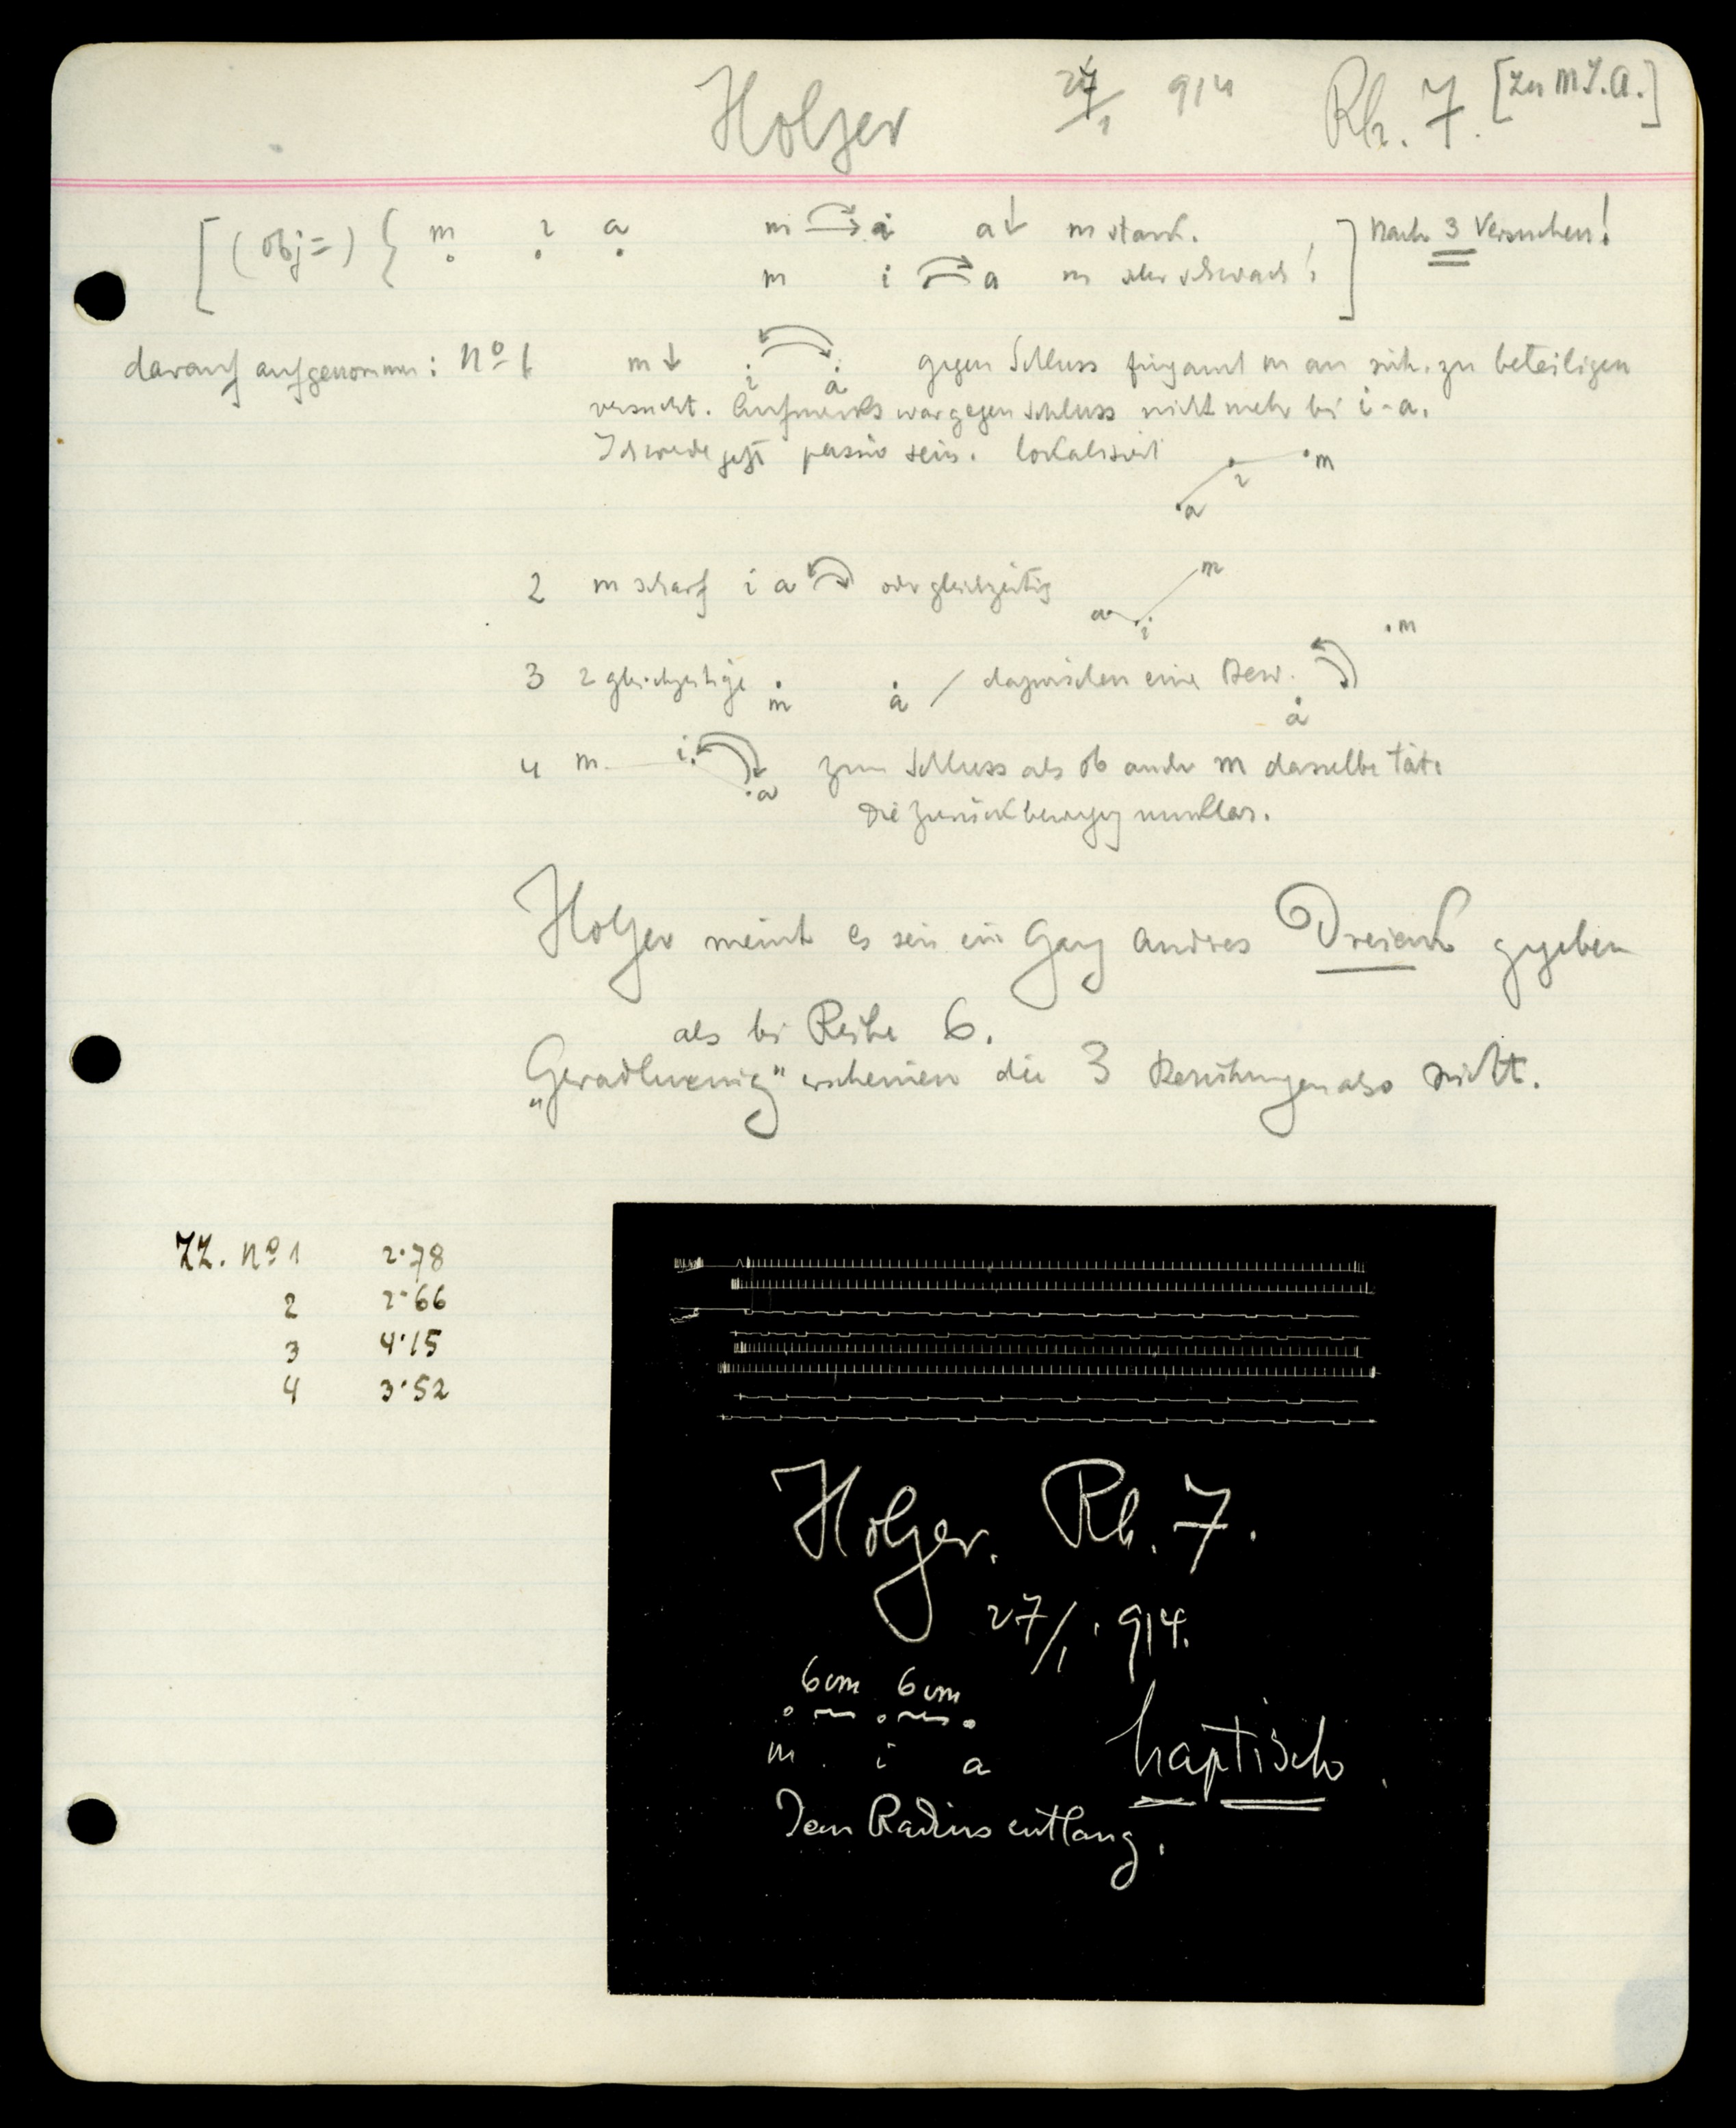 Holger 27/1 914 Rh. 7. [zu M.I.A.]
[(obj=) { m i a m i a↓ m stark. ] Nach 3 Versuchen!
m i a m aber schwach!
darauf aufgenommen: No 1 m↓ i a gegen Schluss fing auch m an sich zu beteiligen
versucht. Aufmerks war gegen Schluss nicht mehr bei i-a.
Ich werde jetzt passiv sein. lokalisiert a i m
2 m scharf i a oder gleichzeitig a i m
3 2 gleichzeitige m a / dazwischen eine Bew. a m
4 m i a zum Schluss als ob auch m dasselbe täte
Die Zurückbewegg unklar.
Holger meint es sei ein ganz andres Dreieck gegeben
als bei Reihe 6.
„Geradlinig" erscheinen die 3 Berührungen also nicht.
ZZ. No 1 2·78
2 2·66
3 4·15
4 3·52
Holger. Rh. 7.
27/1. 914.
6cm 6cm
m i a haptisch
Dem Radius entlang.